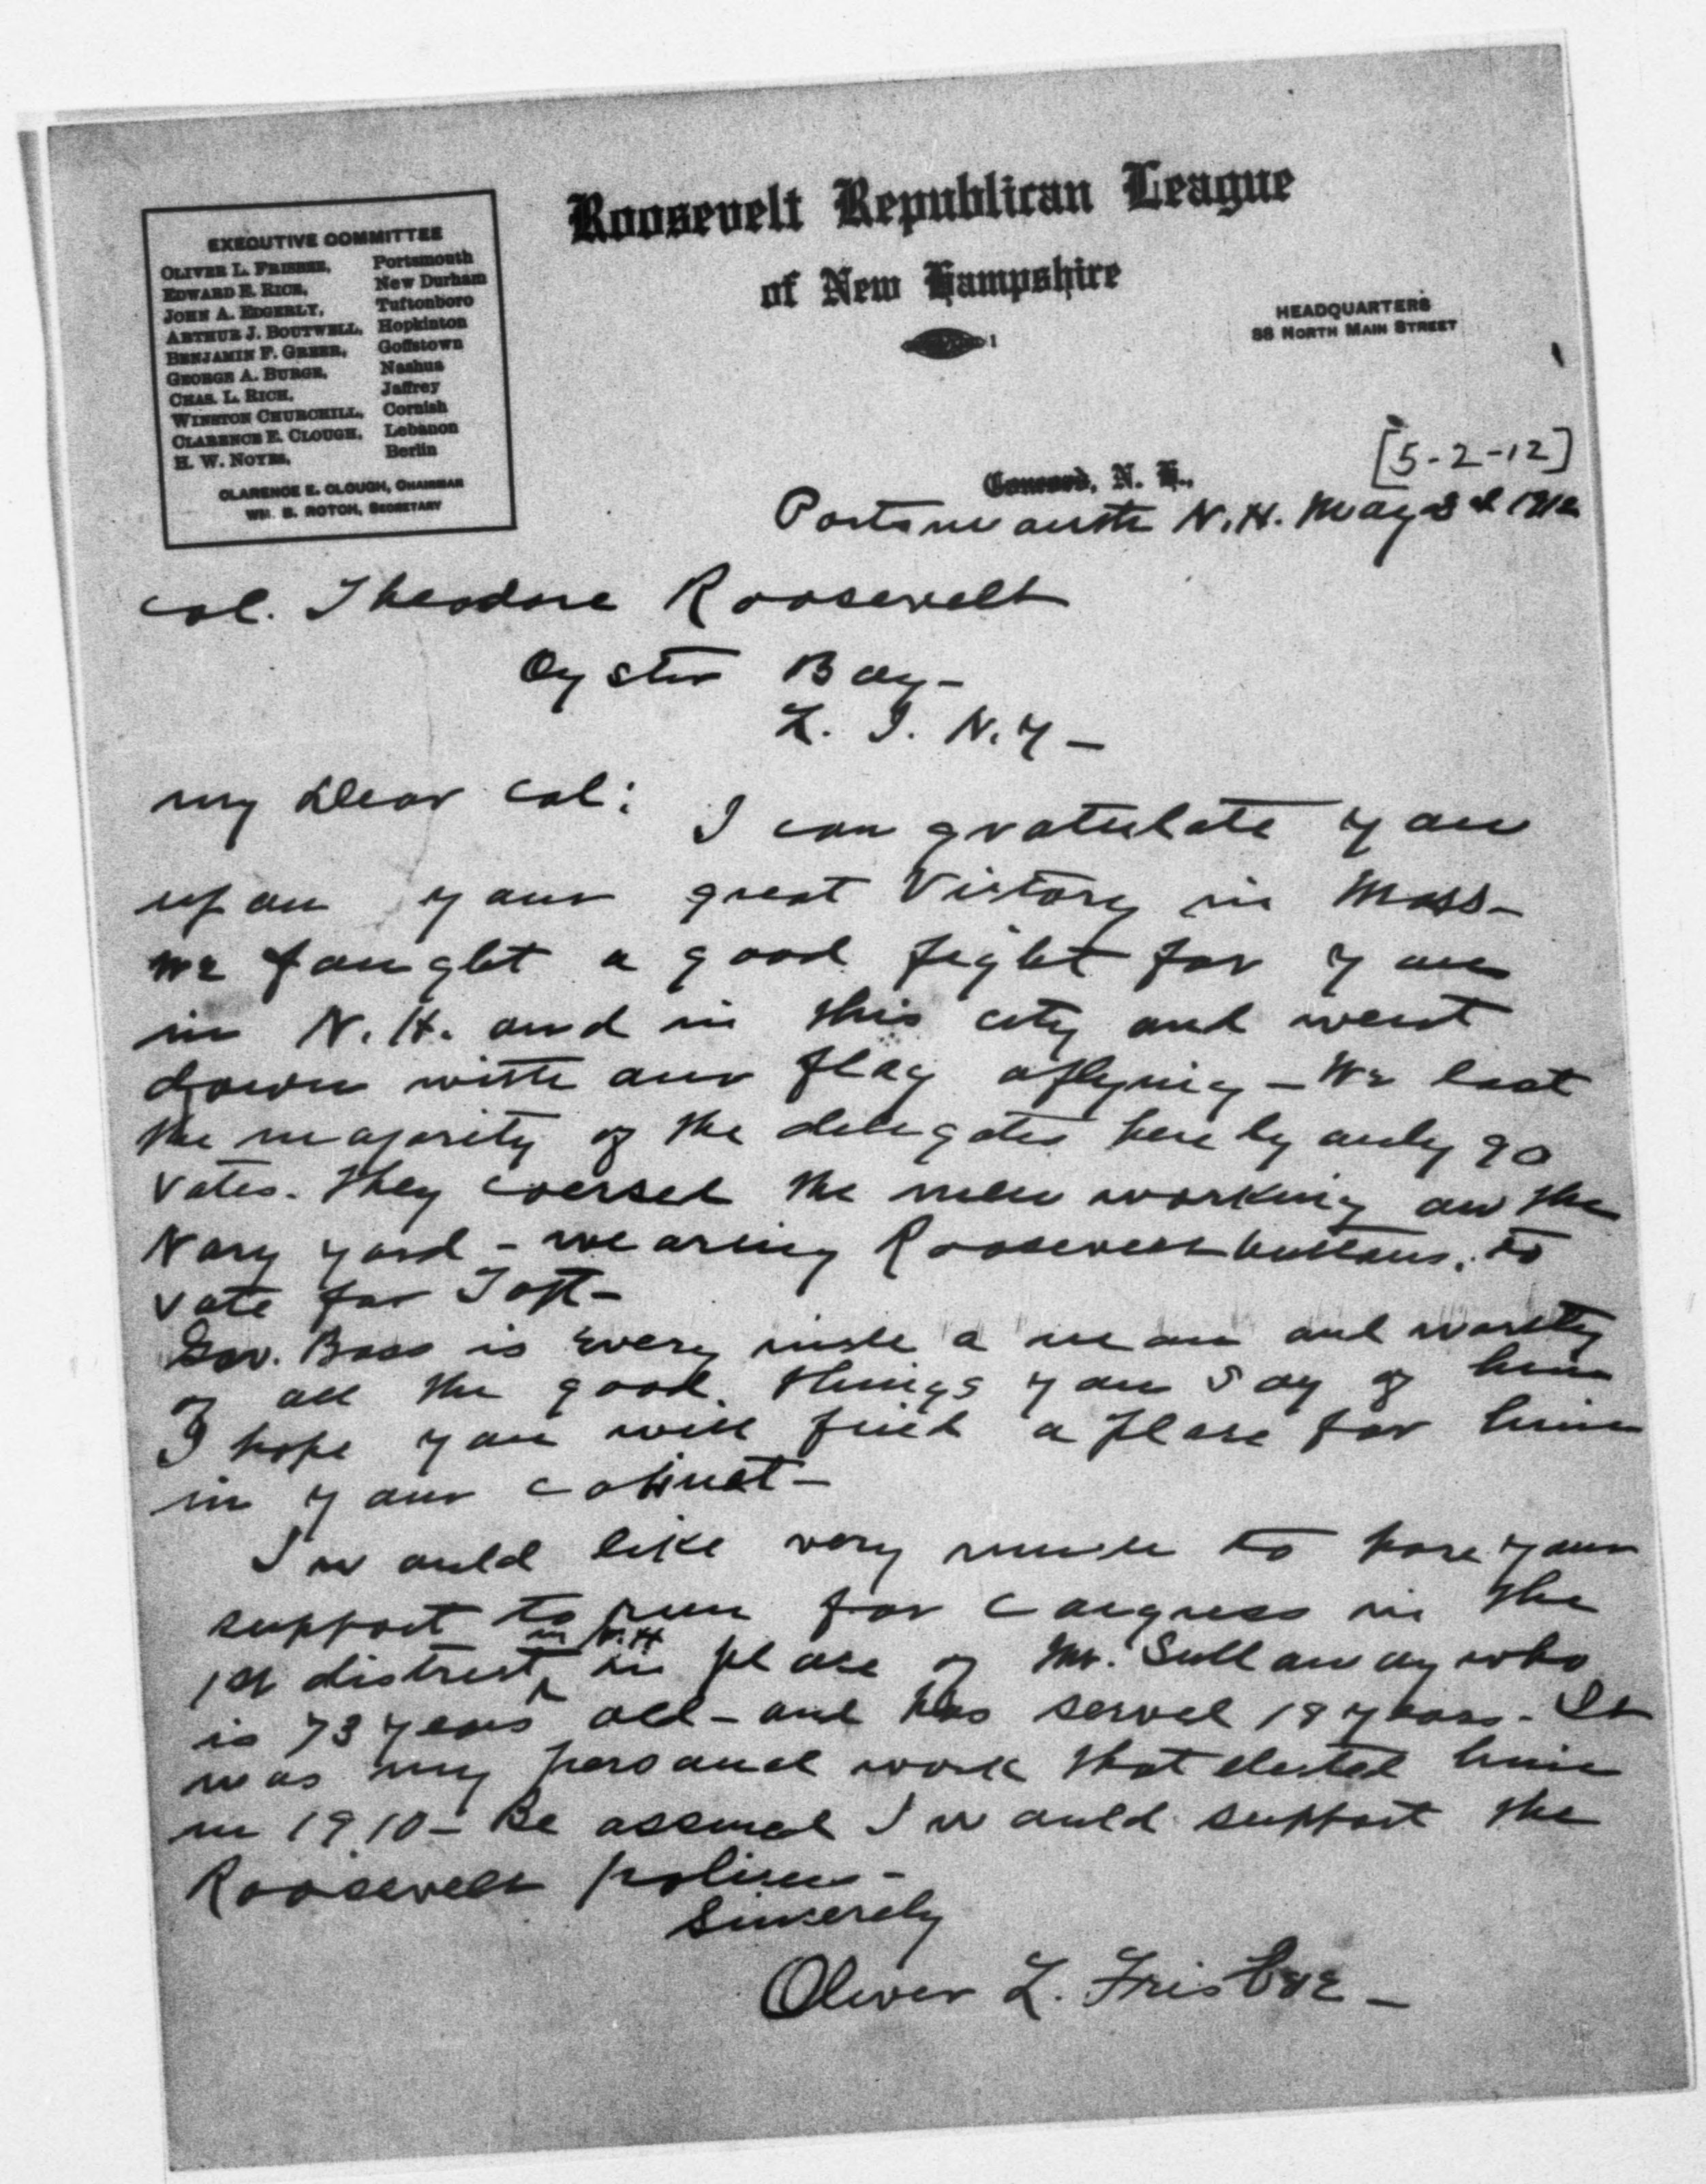 Roosevelt Republican League
of New Hampshire
EXECUTIVE COMMITTEE
OLIVER L. FRISBEE, Portsmouth
EDWARD E. RICE, New Durham
JOHN A. EDGERLY, Tuftonboro
ARTHUR J. BOUTWELL, Hopkinton
BENJAMIN F. GREER, Goffstown
GEORGE A. BURGE, Nashua
CHAS. L. RICH, Jaffrey
WINSTON CHURCHILL, Cornish
CLARENCE E. CLOUGH, Lebanon
H. W. NOYES, Berlin
CLARENCE E. CLOUGH, CHAIRMAN
WM. B. ROTCH, SECRETARY
HEADQUARTERS
88 NORTH MAIN STREET
[5-2-12]
Concord, N. H.,
Portsmouth N.H. May 2d 1912
Col. Theodore Roosevelt
Oyster Bay-
L. I. N.Y-
My Dear Col: I congratulate you
upon your great Victory in Mass-
We fought a good fight for you
in N.H. and in this city and went
down with our flag aflying - We lost
the majority of the delegates here by only 90
votes. They coersed the men working on the
Navy yard - wearing Roosevelt buttons, to
vote for Taft-
Gov. Bass is every inch a man and worthy
of all the good things you say of him
I hope you will find a place for him
in your cabinet-
I would like very much to have your
support to run for Congress in the
1st district in N.H in place of Mr. Sullaway who
is 73 years old - and has served 18 years - It
was my personal work that elected him
in 1910 - Be assured I would support the
Roosevelt policies-
Sincerely
Oliver L. Frisbee-